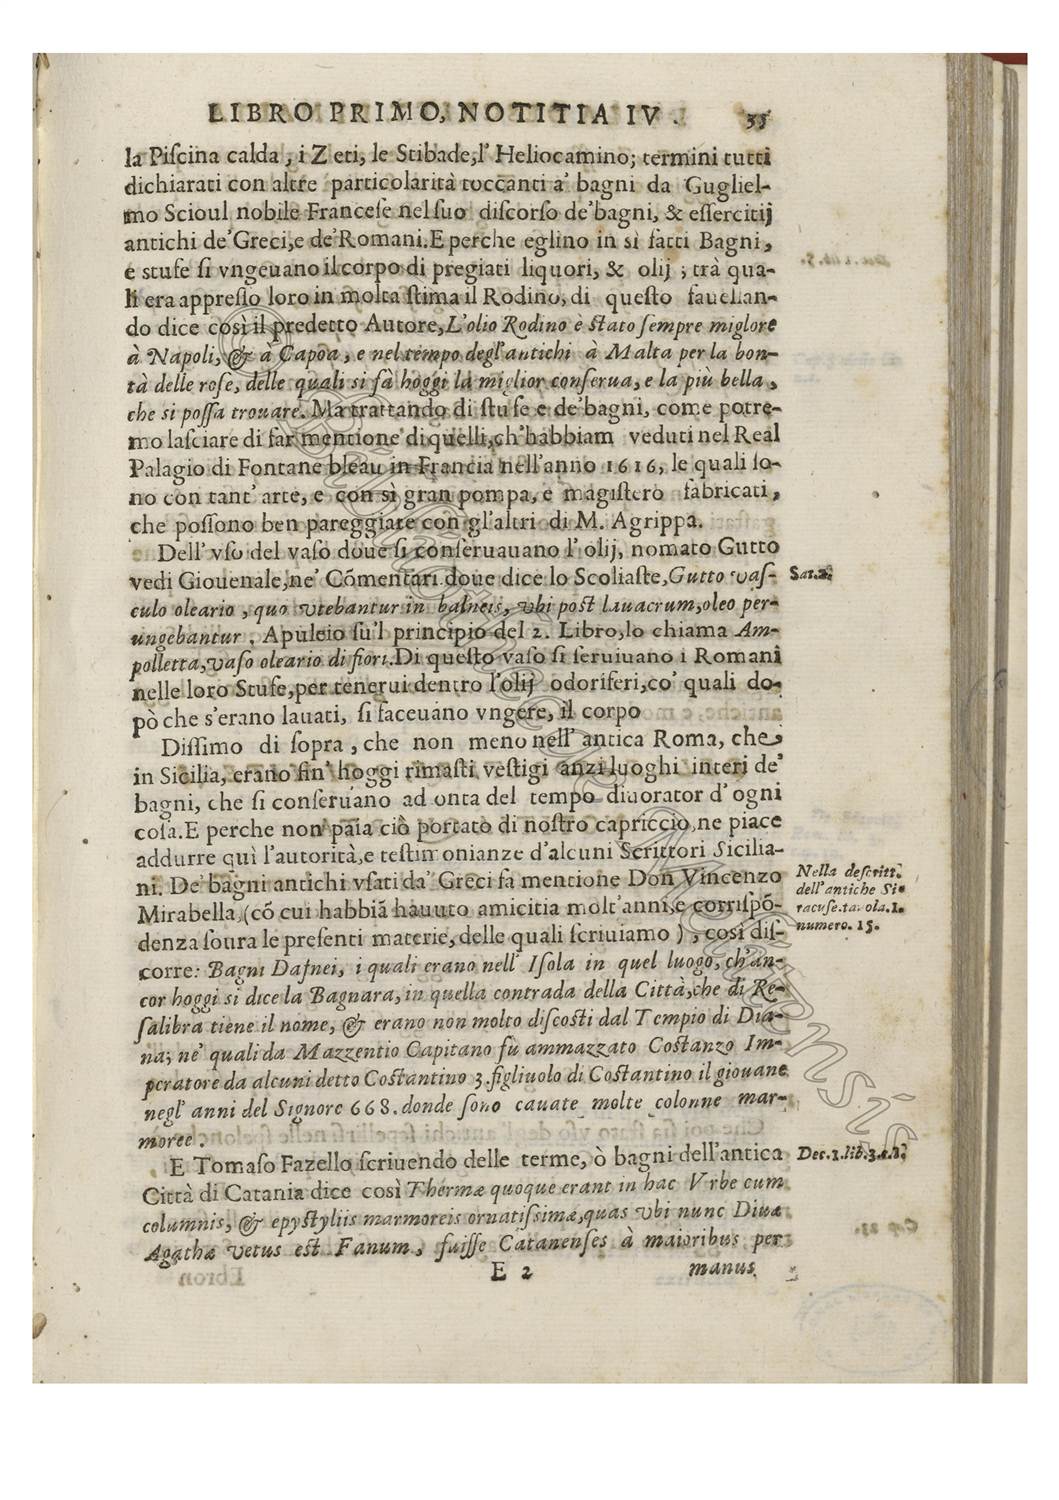 LIBRO PRIMO, NOTITIA IV. 35
la Piſcina calda, i Zeti, le Stibade, l' Heliocamino; termini tutti
dichiarati con altre particolarità toccanti a' bagni da Gugliel-
mo Scioul nobile Franceſe nel ſuo diſcorſo de'bagni, & eſſercitij
antichi de'Greci, e de'Romani. E perche eglino in sì fatti Bagni,
e stufe ſi vngeuano il corpo di pregiati liquori, & olij; trà qua-
li era appreſſo loro in molta ſtima il Rodino, di queſto fauellan-
do dice così il predetto Autore, L'olio Rodino è ſtato ſempre miglore
à Napoli, & à Capoa, e nel tempo degl'antichi à Malta per la bon-
tà delle roſe, delle quali si fà hoggi la miglior conſerua, e la più bella,
che si poſſa trouare. Ma trattando di ſtufe e de'bagni, come potre-
mo laſciare di far mentione di quelli, ch'habbiam veduti nel Real
Palagio di Fontane bleau in Francia nell'anno 1616, le quali ſo-
no con tant' arte, e con sì gran pompa, e magiſtero fabricati,
che poſſono ben pareggiare con gl'altri di M. Agrippa.
Dell' vſo del vaſo doue ſi conſeruauano l' olij, nomato Gutto
vedi Giouenale, ne' Cõmentari doue dice lo Scoliaſte, Gutto vaſ- Sat.3.
culo oleario, quo vtebantur in balneis, vbi poſt lauacrum, oleo per-
ungebantur. Apuleio ſu'l principio del 2. Libro, lo chiama Am-
polletta, vaſo oleario di fiori. Di queſto vaſo ſi ſeruiuano i Romani
nelle loro Stufe, per tenerui dentro l'olij odoriferi, co' quali do-
pò che s'erano lauati, ſi faceuano vngere, il corpo
Diſſimo di ſopra, che non meno nell' antica Roma, che
in Sicilia, erano fin' hoggi rimaſti veſtigi anzi luoghi interi de'
bagni, che ſi conſeruano ad onta del tempo diuorator d' ogni
coſa. E perche non paia ciò portato di noſtro capriccio, ne piace
addurre quì l'autorità, e teſtimonianze d'alcuni Scrittori Sicilia-
ni. De' bagni antichi vſati da' Greci fa mentione Don Vincenzo
Mirabella, (cõ cui habbiã hauuto amicitia molt'anni, e corriſpõ-
denza ſoura le preſenti materie, delle quali ſcriuiamo), così diſ-
Nella deſcritt.
dell'antiche Si-
racuſe. tauola. 1.
numero. 15.
corre: Bagni Dafnei, i quali erano nell' Iſola in quel luogo, ch'an-
cor hoggi si dice la Bagnara, in quella contrada della Città, che di Re-
ſalibra tiene il nome, & erano non molto diſcoſti dal Tempio di Dia-
na; ne' quali da Mazzentio Capitano fù ammazzato Coſtanzo Im-
peratore da alcuni detto Coſtantino 3. figliuolo di Coſtantino il giouane
negl' anni del Signore 668. donde ſono cauate molte colonne mar-
moree.
E Tomaſo Fazello ſcriuendo delle terme, ò bagni dell'antica Dec.1.lib.3.
Città di Catania dice così Thermæ quoque erant in hac Vrbe cum
columnis, & epyſtyliis marmoreis ornatiſsimæ, quas vbi nunc Diuæ
Agathæ vetus eſt Fanum, fuiſſe Catanenſes à maioribus per
E 2 manus